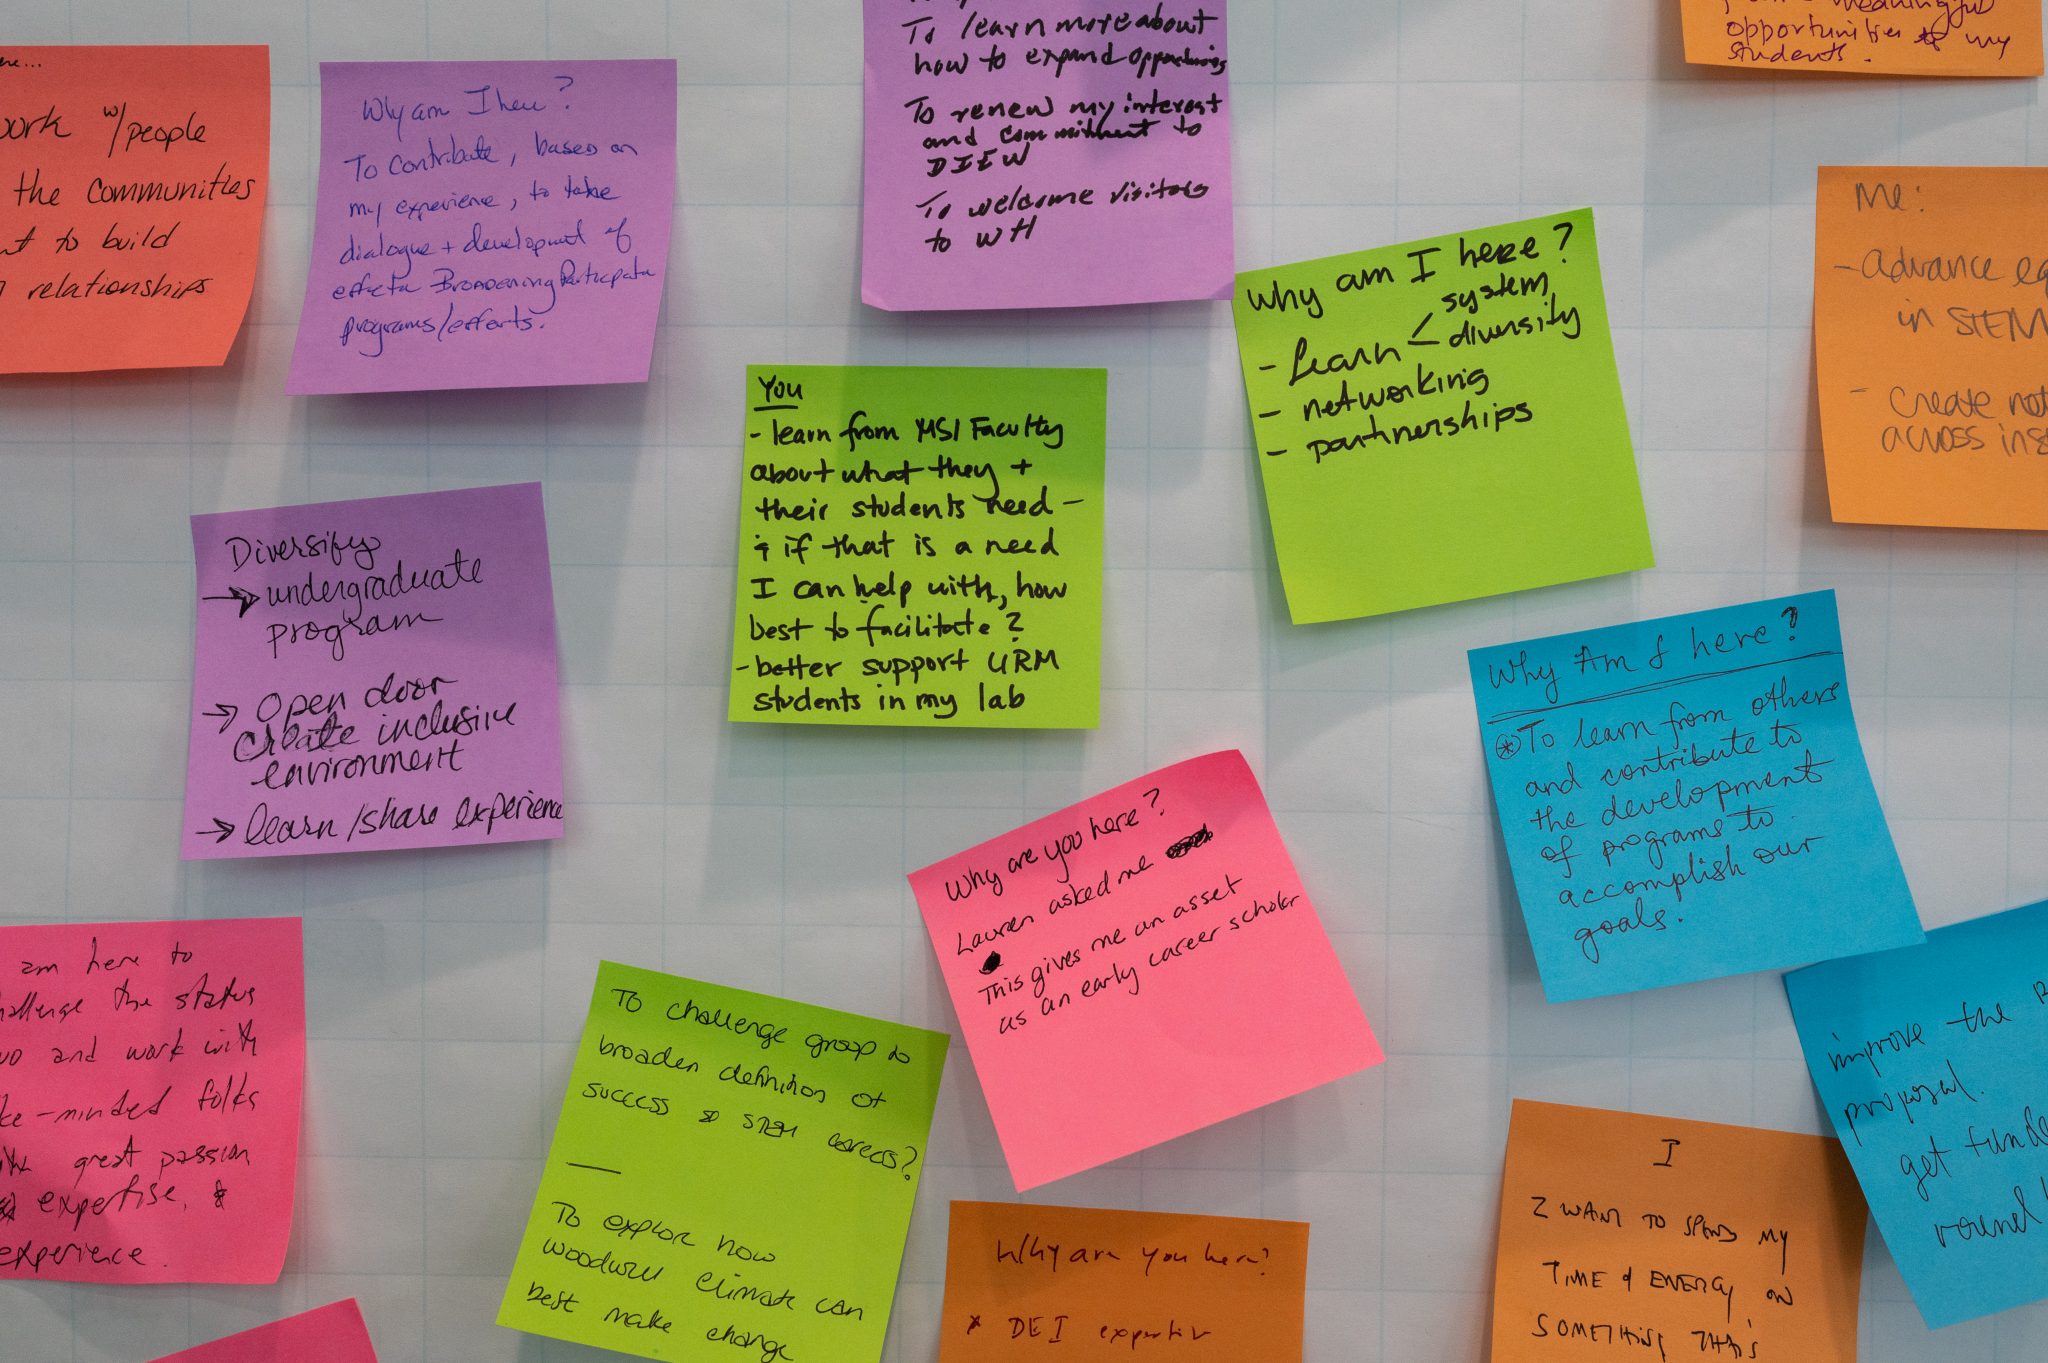 work w/people
the communities
to build
relationships
Why am I here?
To contribute, based on
my experience, to take
dialogue + development of
Broadening Participata
programs/efforts.
To learn more about
how to expand opportunities
To renew my interest
and commitment to
DIEW
To welcome visitors
to WH
meaningful
opportunities to my
students.
Why am I here?
- Learn < system
diversity
- networking
- partnerships
Me:
- Advance eq
in STEM
- Create net
across inst
You
- learn from MSI Faculty
about what they +
their students need -
& if that is a need
I can help with, how
best to facilitate?
- better support URM
students in my lab
Diversify
→ undergraduate
program
→ Open door
Create inclusive
environment
→ learn/share experience
Why Am I here?
* To learn from others
and contribute to
the development
of programs to
accomplish our
goals.
Why are you here?
Lauren asked me
This gives me an asset
as an early career scholar
am here to
challenge the status
quo and work with
like-minded folks
great passion
expertise, &
experience.
To challenge group to
broaden definition of
success STEM careers?
To explore how
Woodwell Climate can
best make change
improve the
proposal.
get funde
round
Why are you here?
* DEI
I
I WANT TO SPEND MY
TIME & ENERGY ON
SOMETHING THAT'S